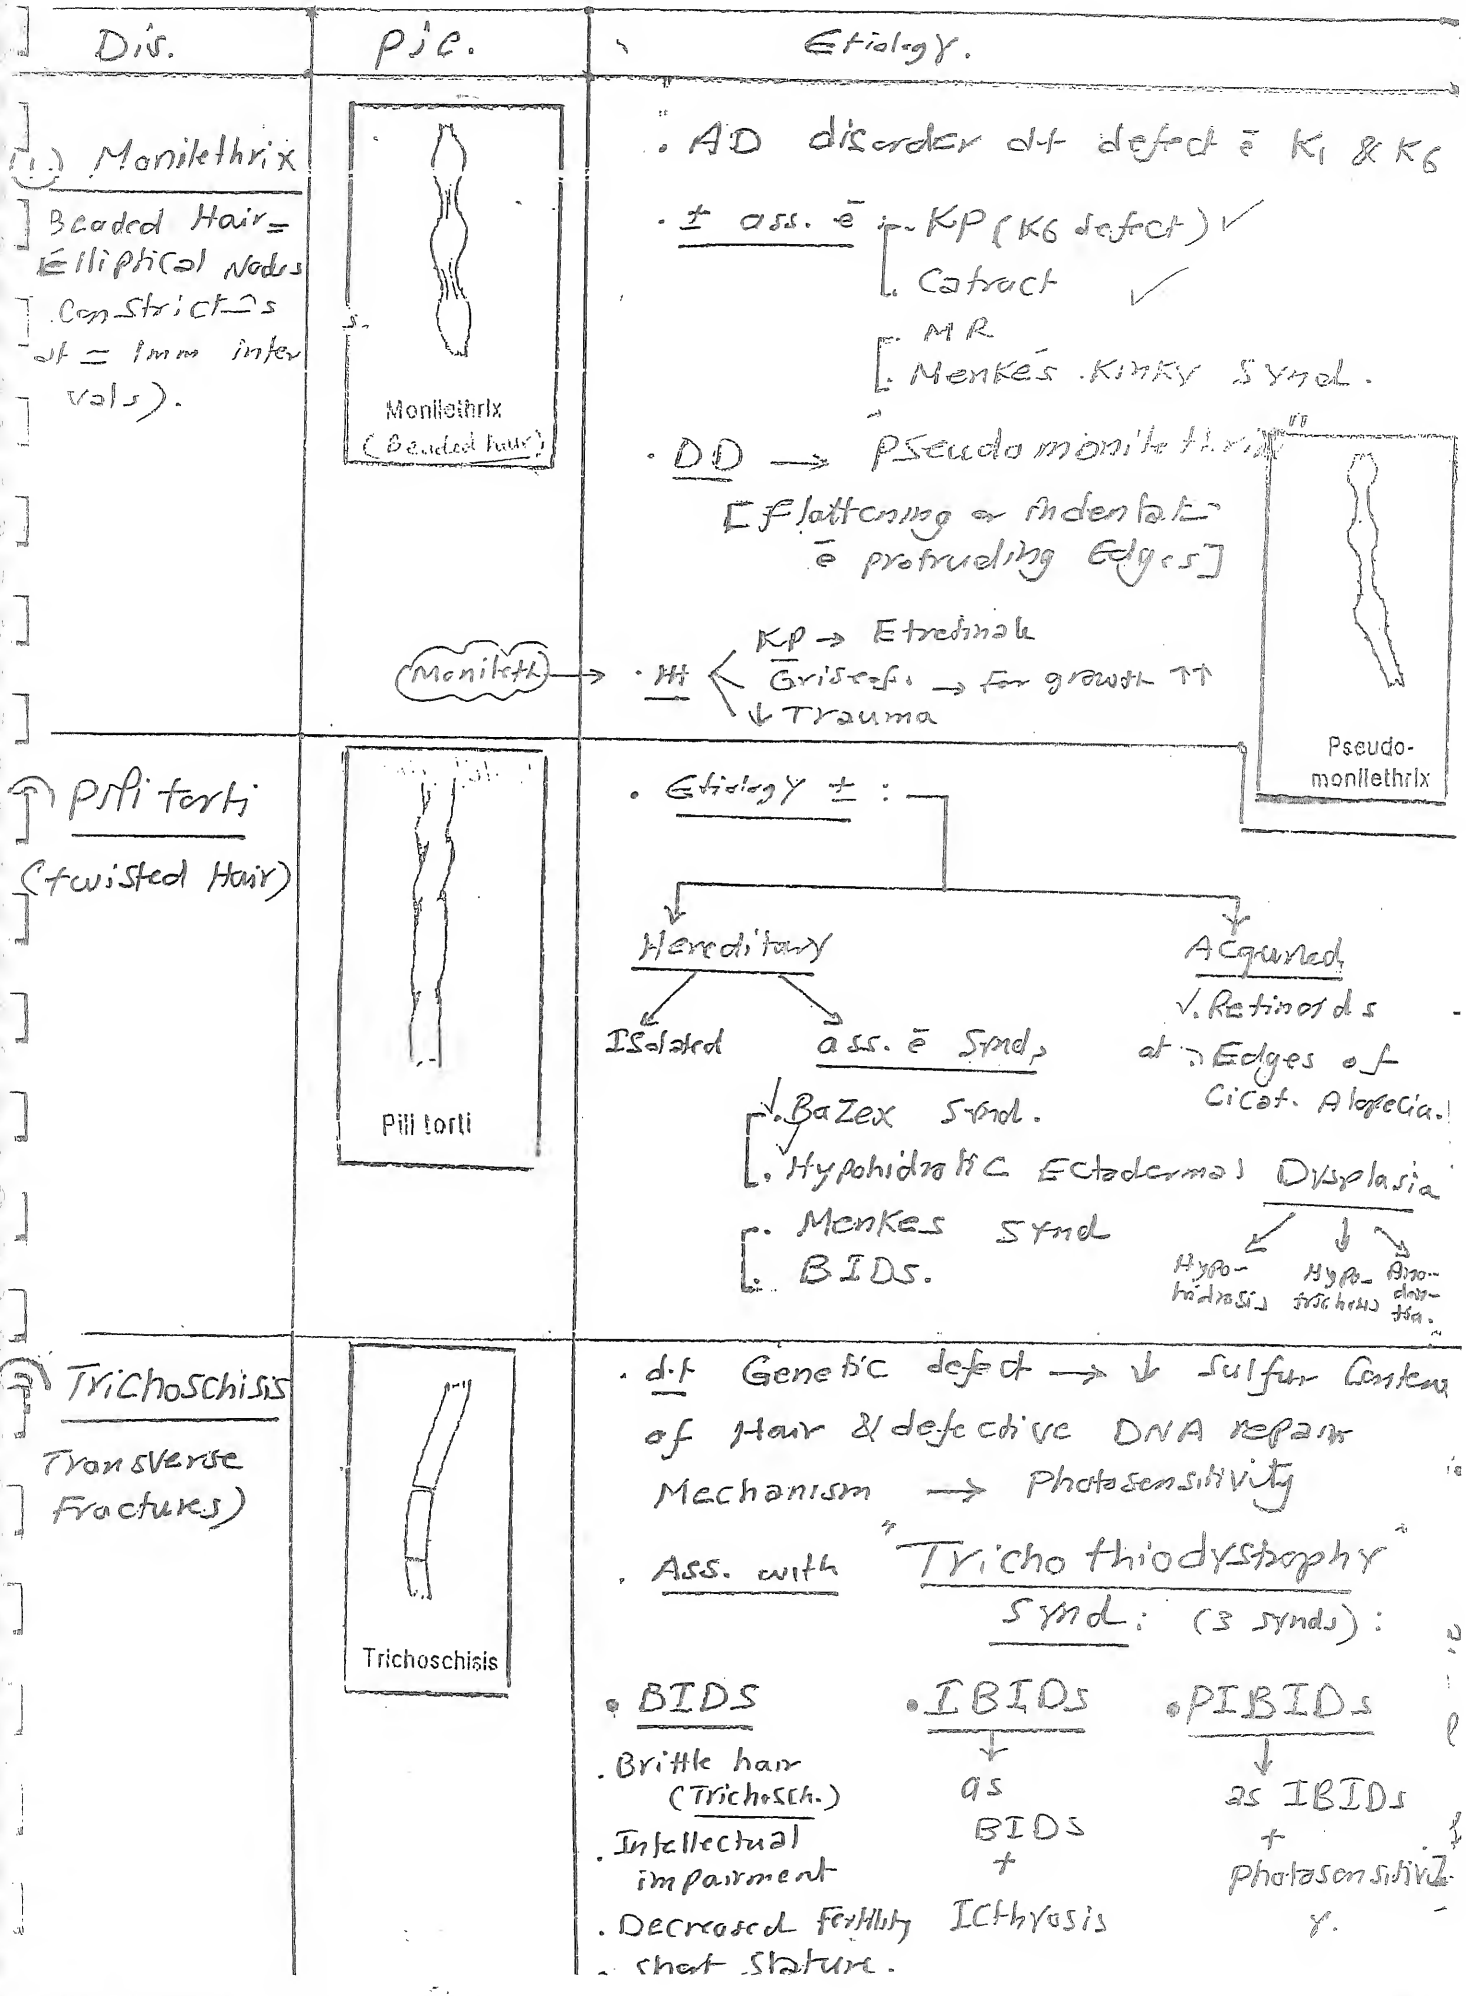 Dis.
Pic.
Etiology.
(1.) Monilethrix
Beaded Hair=
Elliptical Nodes
Constrict⁻s
at = 1mm inter
vals).
Monilethrix
(Beaded hair)
. AD disorder dt defect ē K1 & K6
. ± ass. ē
. KP (K6 defect) ✓
. Catract ✓
. MR
. Menkes Kinky Synd.
. DD → "Pseudomonilethrix"
[Flattening or indentat⁻
ē protruding Edges]
Pseudo-
monilethrix
Monileth → . ttt
KP → Etretinate
Griseof. → for growth ↑↑
↓ Trauma
Pili torti
(twisted Hair)
Pili torti
. Etiology ± :
Hereditary
Acquired
Isolated
ass. ē Synd,
✓. Retinoids
at Edges of
Cicat. Alopecia.
✓. Bazex Synd.
✓. Hypohidrotic Ectodermal Dysplasia
. Menkes Synd
. BIDS.
Hypo-
hidrosis
Hypo-
trichosis
Ano-
don-
tia.
Trichoschisis
Transverse
Fractures)
Trichoschisis
. d.t Genetic defect → ↓ Sulfur Conten
of Hair & defective DNA repair
Mechanism → Photosensitivity
. Ass. with "Trichothiodystrophy"
Synd: (3 synds):
• BIDS
• IBIDs
• PIBIDs
. Brittle hair
(Trichosch.)
. Intellectual
impairment
. Decreased Fertility
. Short Stature.
as
BIDS
+
Icthyosis
as IBIDs
+
Photosensitivit
y.